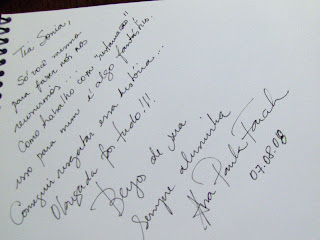 Tia Sonia,
Só você mesma
para fazer nós nos
reunirmos...
Como trabalho com "restauração"
isso para mim é algo fantástico.
Conseguir resgatar essa história...
Obrigada por tudo!!!
Beijo de sua
sempre aluninha
Ana Paula Farah
07.08.08